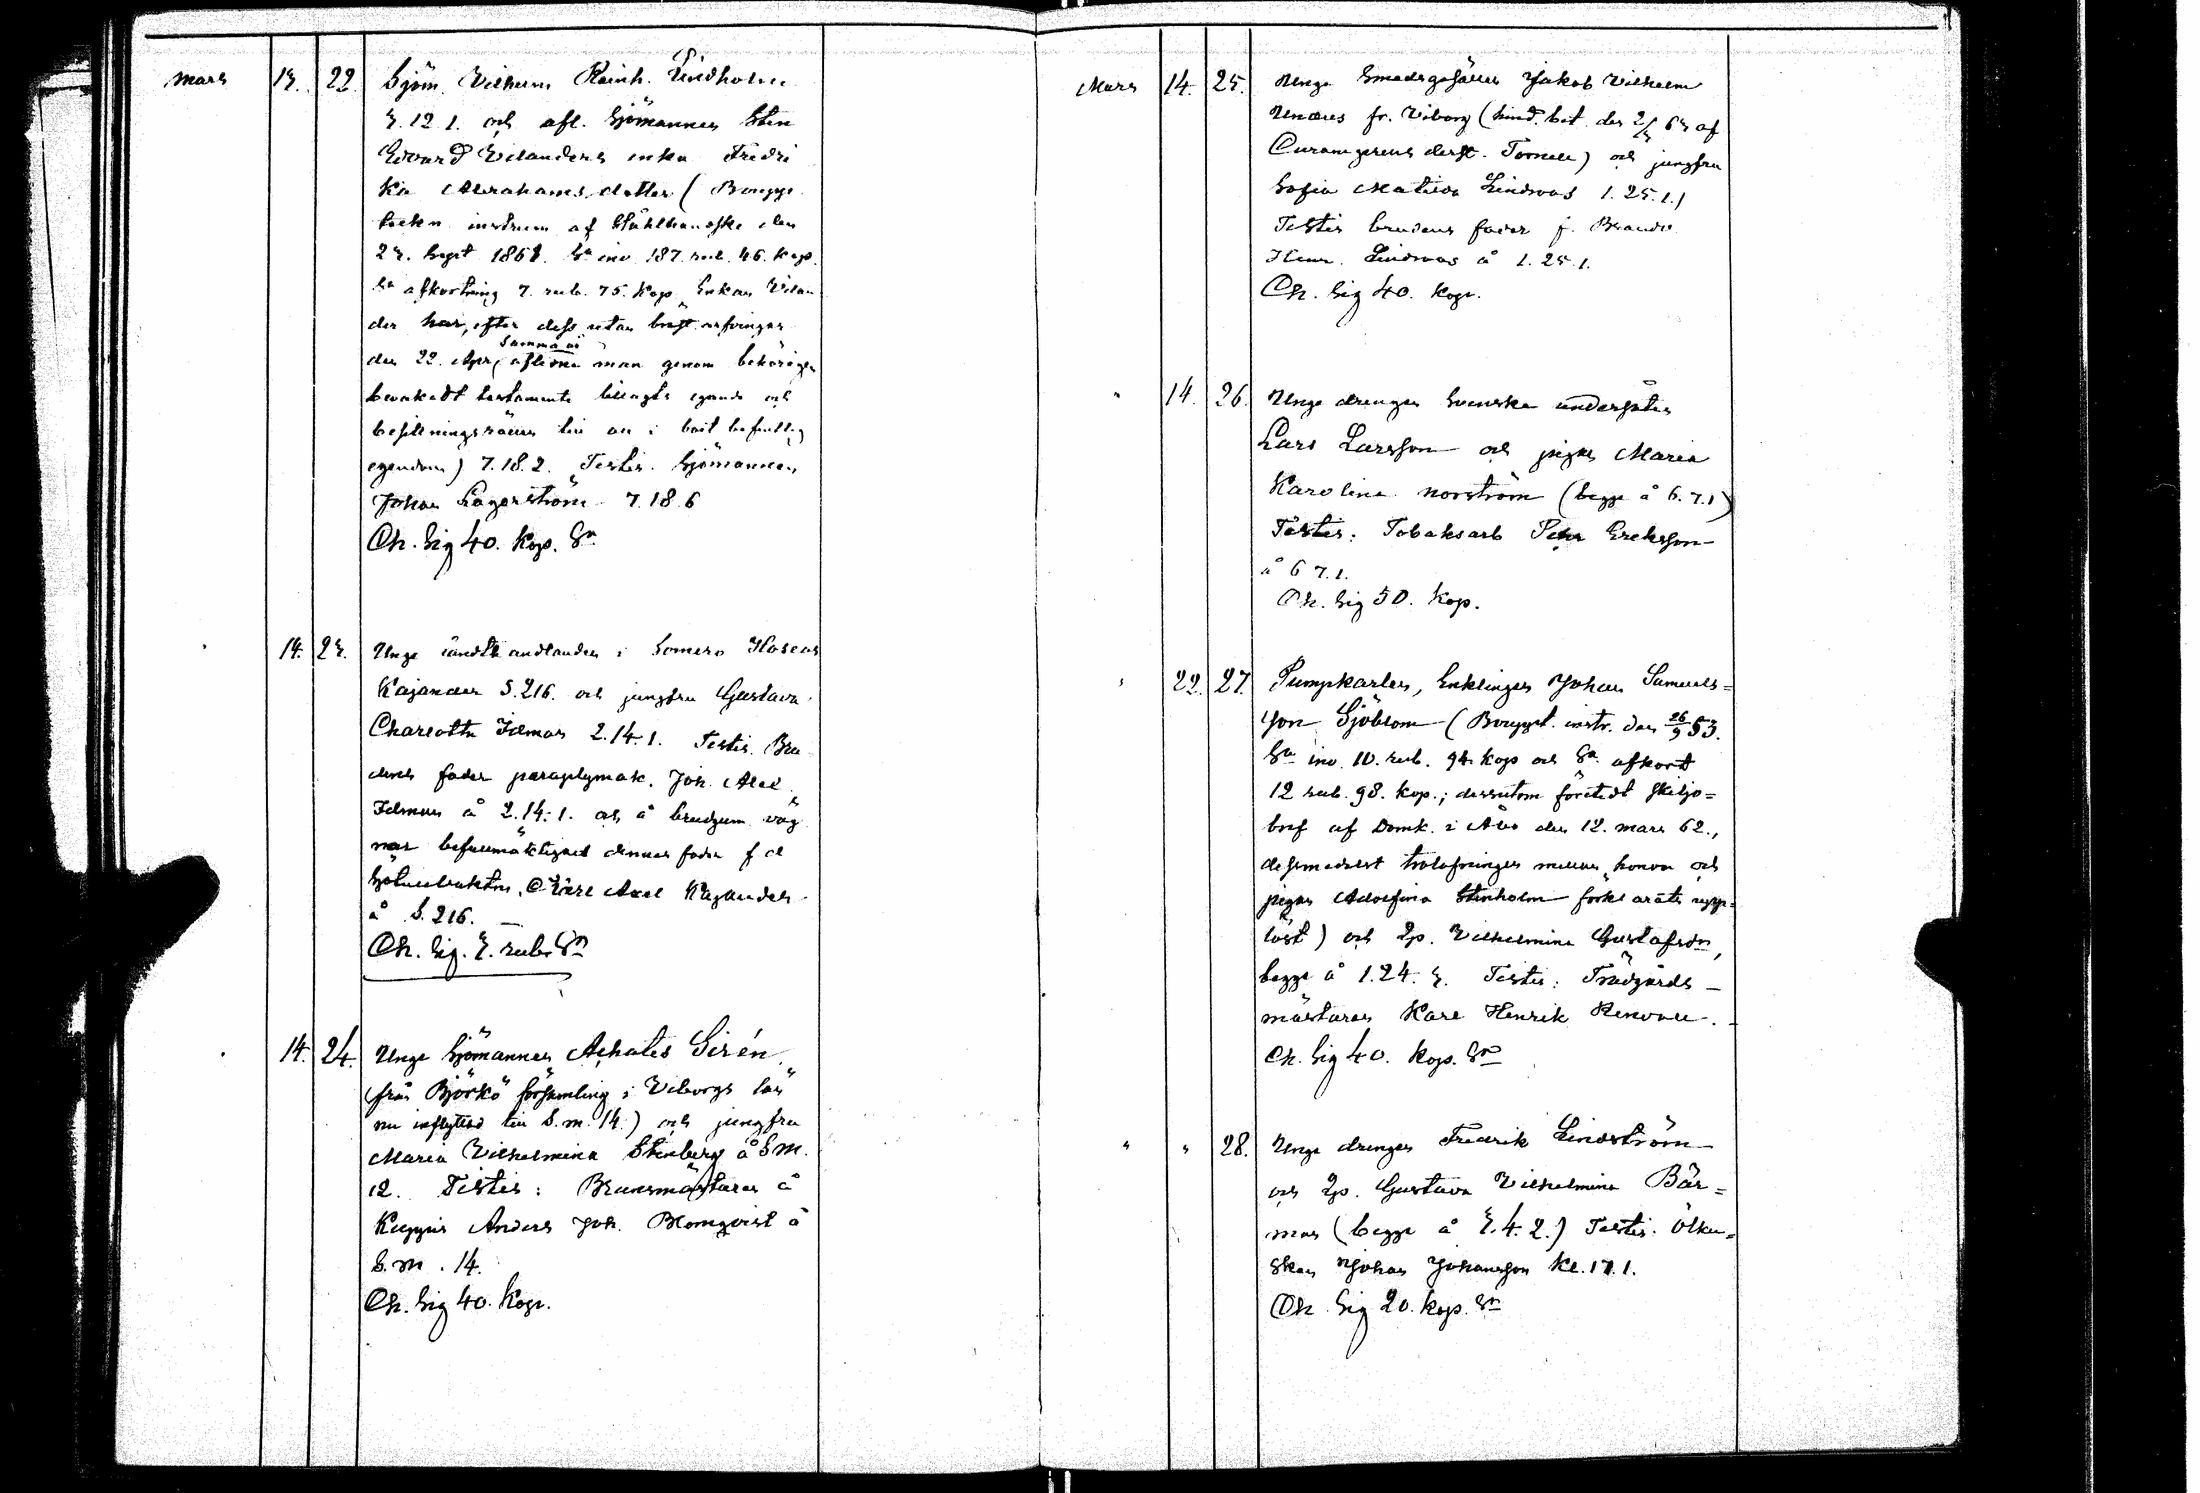 Mars 13. 22. Sjöm. Vilhelm Reinh. Lindholm
3.12 1. och afl. Sjömannen Sten
Edvard Vilanders enka Fredri
ka Abrahamsdotter (Bouppt
teckn instrum af Stålhandske den
23. Sept 1861. Sr inv 187. rub. 46. kop.
Sr afkortning 7. rub. 75. kop. Enkan Vilan
der har, efter dess utan bröst arfvingar
den 22. Apr, samma år aflidne man genom behörigen
bevakadt testamente tillagts egande och
besittningsrätten till all i boet befintlig
egendom) 7.18.2. Testis. Sjömannen
Johan Lagerström 7.18.6
Ch. Sig 40. Kop. Sr
14. 23. Unge landthandlanden i Somero Hoseas
Kajander S.216. och jungfru Gustava
Charlotta Idman 2.14.1. Testis. Bru
dens fader paraplymak. Joh. Abel
Idman å 2.14.1. och å brudgum väg
nar befullmäktigad dennes fader f d
Carl Axel Kajander
å S. 216.
Ch. Sig. 3. rub. Sr
14. 24. Unge Sjömannen Achates Sirén
(från Björkö församling i Viborgs län
nu inflyttad till S.m. 14.) och jungfru
Maria Vilhelmina Stenberg å S M.
12. Testis: Brunsmästaren å
Kuppis Anders Joh. Blomqvist å
S.m. 14.
Ch. Sig 40. Kop.
Mars 14. 25. Unge Smedsgesällen Jakob Vilhelm
fr. Viborg (hind. bet. den 2/3 63 af
derst. Tornell) och jungfru
Sofia Matilda Lindroos 1. 25. 1.)
Testis brudens fader f.
Henr. Lindroos å 1. 25 1.
Ch. Sig 40. Kop.
" 14. 26. Unge drengen Svenska undersåten
Lars Larsson och pigan Maria
Karolina Norström (begge å 6. 7. 1)
Testis: Tobaksarb Petr Erekson
å 6 7. 1.
Ch. Sig 50. Kop.
" 22. 27. Pumpkarlen, Enklingen Johan Samuels=
son Sjöblom (Bouppt. instr. den 26/9 53.
Sr inv. 10. rub. 94 kop och Sr afkort
12 rub. 98. kop.; dessutom företedt skiljo=
bref af Domk. i Åbo den 12. mars 62.,
desmedelst trolofningen mellan honom och
pigan Adolfina Stenholm förklarats upp=
löst) och Qp. Vilhelmina Gustafsdr,
begge å 1. 24. 3. Testis: Trädgårds-
mästaren Karl Henrik Renvall.
Ch. Sig 40. Kop. Sr
" " 28. Unge drengen Fredrik Lindström
och Qp. Gustava Vilhelmina Bär=
man (begge å 3. 4. 2.) Testis. Ölku=
sken Johan Johansson Kl. 17. 1.
Ch. Sig 20. Kop. Sr